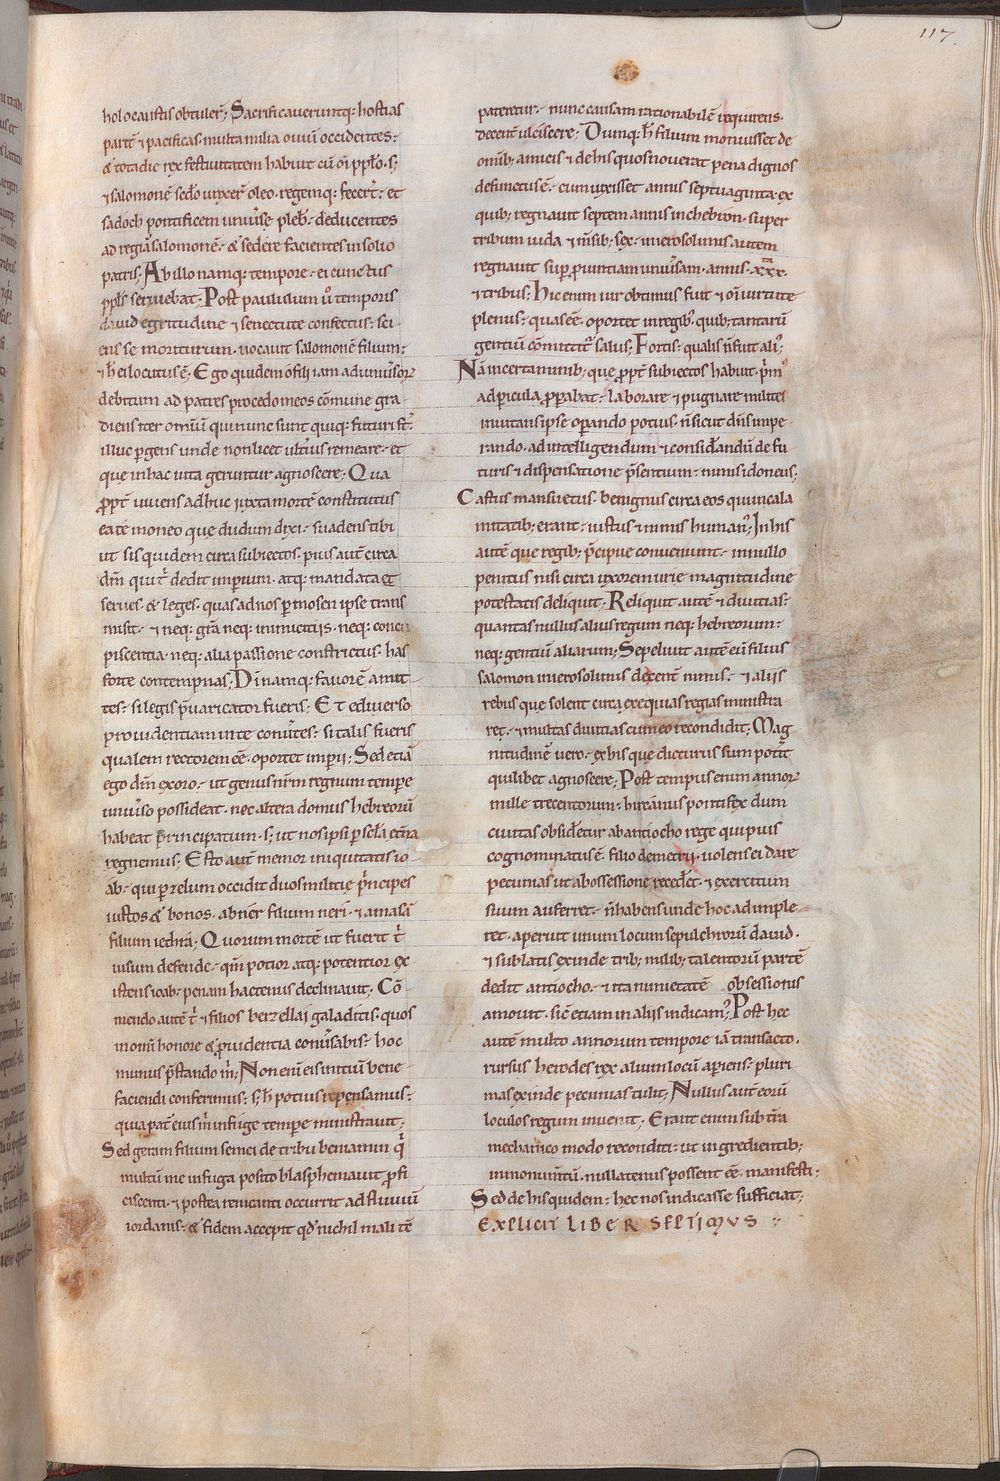 117.
holocaustis obtuler̄; Sacrificaveruntq; hostias
partē ⁊ pacificas. multa milia oviū occidentes;
& tota die rex festivitatem habuit cū oī pplō. s;
⁊ salomonē scd̄o unxer̄ oleo. regemq; fecer̄t. et
sadoch pontificem univ̄sę pleb̄. deducentes
ad regiā salomonē. & sedere facientes in solio
patris; Ab illo namq; tempore. ei cunctus
ppl̄s serviebat; Post paululum ū temporis
david egritudine ⁊ senectute confectus. sci
ens se moriturum. vocavit salomonē filium;
⁊ h̄ ei locutus ē; Ego quidem o fili iam ad univ̄soꝝ
debitum ad patres procedo meos cōmune gra
diens iter omniū qui nunc sunt quiq; futuri st̄.
illuc pergens unde non licet ulterius remeare. et
que in hac vita geruntur agnoscere; Qua
propt̄ vivens adhuc iuxta mortē constitutus
ea te moneo que dudum dixi. suadens tibi
ut sis quidem circa subiectos. pius autē circa
dm̄ qui t̄ dedit imperium. atq; mandata ei
serves. & leges. quas ad nos per mosen ipse trans
misit. ⁊ neq; grā neq; inimicitiis. neq; concu
piscentia. neq; alia passione constrictus. has
forte contempnas; Di namq; favorē amit
tes. si legis p̄varicator fueris; Et ediverso
providentiam in te conv̄tes. si talis fueris
qualem rectorem eē oportet imperii; Sed etiā
ego dm̄ exoro. ut genus nr̄m regnum tempore
univ̄so possideat. nec altera domus hebreorū
habeat principatum. s; ut nos ipsi per scl̄a cuncta
regnemus; Esto autē memor iniquitatis io
ab. qui per zelum occidit duos militię p̄ncipes
iustos & bonos. abner filium neri. ⁊ amasā
filium iethrā; Quorum mortē ut fuerit t̄
visum defende. qm̄ potior atq; potentior ex
istens ioab. penam hactenus declinavit. Cō
mendo autē t̄ ⁊ filios berzellai galaditis. quos
in omī honore & p̄videntia conv̄sabis. hoc
munus p̄stando m̄; Non enī eis initiū bene
faciendi conferimus. s; h̄ potius repensamus.
qua pat̄ eius m̄ in fuge tempore ministravit;
Sed geram filium semei de tribu beniamin q̄
multū me in fuga posito blasphemavit profi
ciscenti. ⁊ postea remeanti occurrit ad fluviū
iordanis. & fidem accepit qd̄ nichil mali tē
pateretur. nunc causam rationabilē requirens.
decent̄ ulciscere; Dumq; h̄ filium monuisset de
omib; amicis ⁊ de his quos noverat pena dignos
defunctus ē. cum vixisset annis septuaginta. ex
quib; regnavit septem annis in chebron. super
tribum iuda ⁊ mensib; sex. in ierosolimis autem
regnavit super provintiam univ̄sam. annis .xxx.
⁊ tribus; Hic enim vir obtimus fuit ⁊ oī virtute
plenus. quas eē oportet in regib; quib; tantarū
gentiū cōmittitur salus; Fortis. qualis n̄ fuit ali⁹;
Nā in certaminib; que propt̄ subiectos habuit. p̄m⁹
ad pericula properabat. laborare ⁊ pugnare milites
invitans ipse operando potius. n̄ sicut dn̄s impe
rando. ad intelligendum ⁊ considerandū de fu
turis ⁊ dispensatione p̄sentium. nimis idoneus;
Castus mansuetus. benignus circa eos qui in cala
mitatib; erant. iustus ⁊ nimis human⁹; In his
autē que regib; p̄cipue conveniunt. in nullo
penitus nisi circa uxorem urie magnitudine
potestatis deliquit; Reliquit autē ⁊ divitias.
quantas nullus alius regum neq; hebreorum.
neq; gentiū aliarum; Sepelivit autē eū filius
salomon in ierosolimis decent̄ nimis. ⁊ aliis
rebus que solent circa exequias regias ministra
ret. ⁊ multas divitias cum eo recondidit; Mag
nitudinē vero. ex his que dicturus sum poterit
quilibet agnoscere; Post tempus enim annoꝝ
mille trecentorum. hircanus pontifex dum
civitas obsideretur ab antiocho rege qui pius
cognominatus ē. filio demetrii. volens ei dare
pecunias ut ab obsessione recederet. ⁊ exercitum
suum auferret. n̄ habens unde hoc adimple
ret. aperuit unum locum sepulchrorū david.
⁊ sublatis exinde trib; milib; talentorū partē
dedit antiocho. ⁊ ita nimietatē obsessionis
amovit. sic̄ etiam in aliis indicam⁹; Post hec
autē multo annorum tempore iā transacto.
rursus herodes rex alium locū aperiens. pluri
mas exinde pecunias tulit; Nullus autē eorū
loculos regum invenit. Erant enim sub tr̄a
mechanico modo reconditi. ut ingredientib;
in monumtū. nullatenus possent eē manifesti;
Sed de his quidem. hec nos indicasse sufficiat;
EXPLICIT LIBER SEPTIMVS